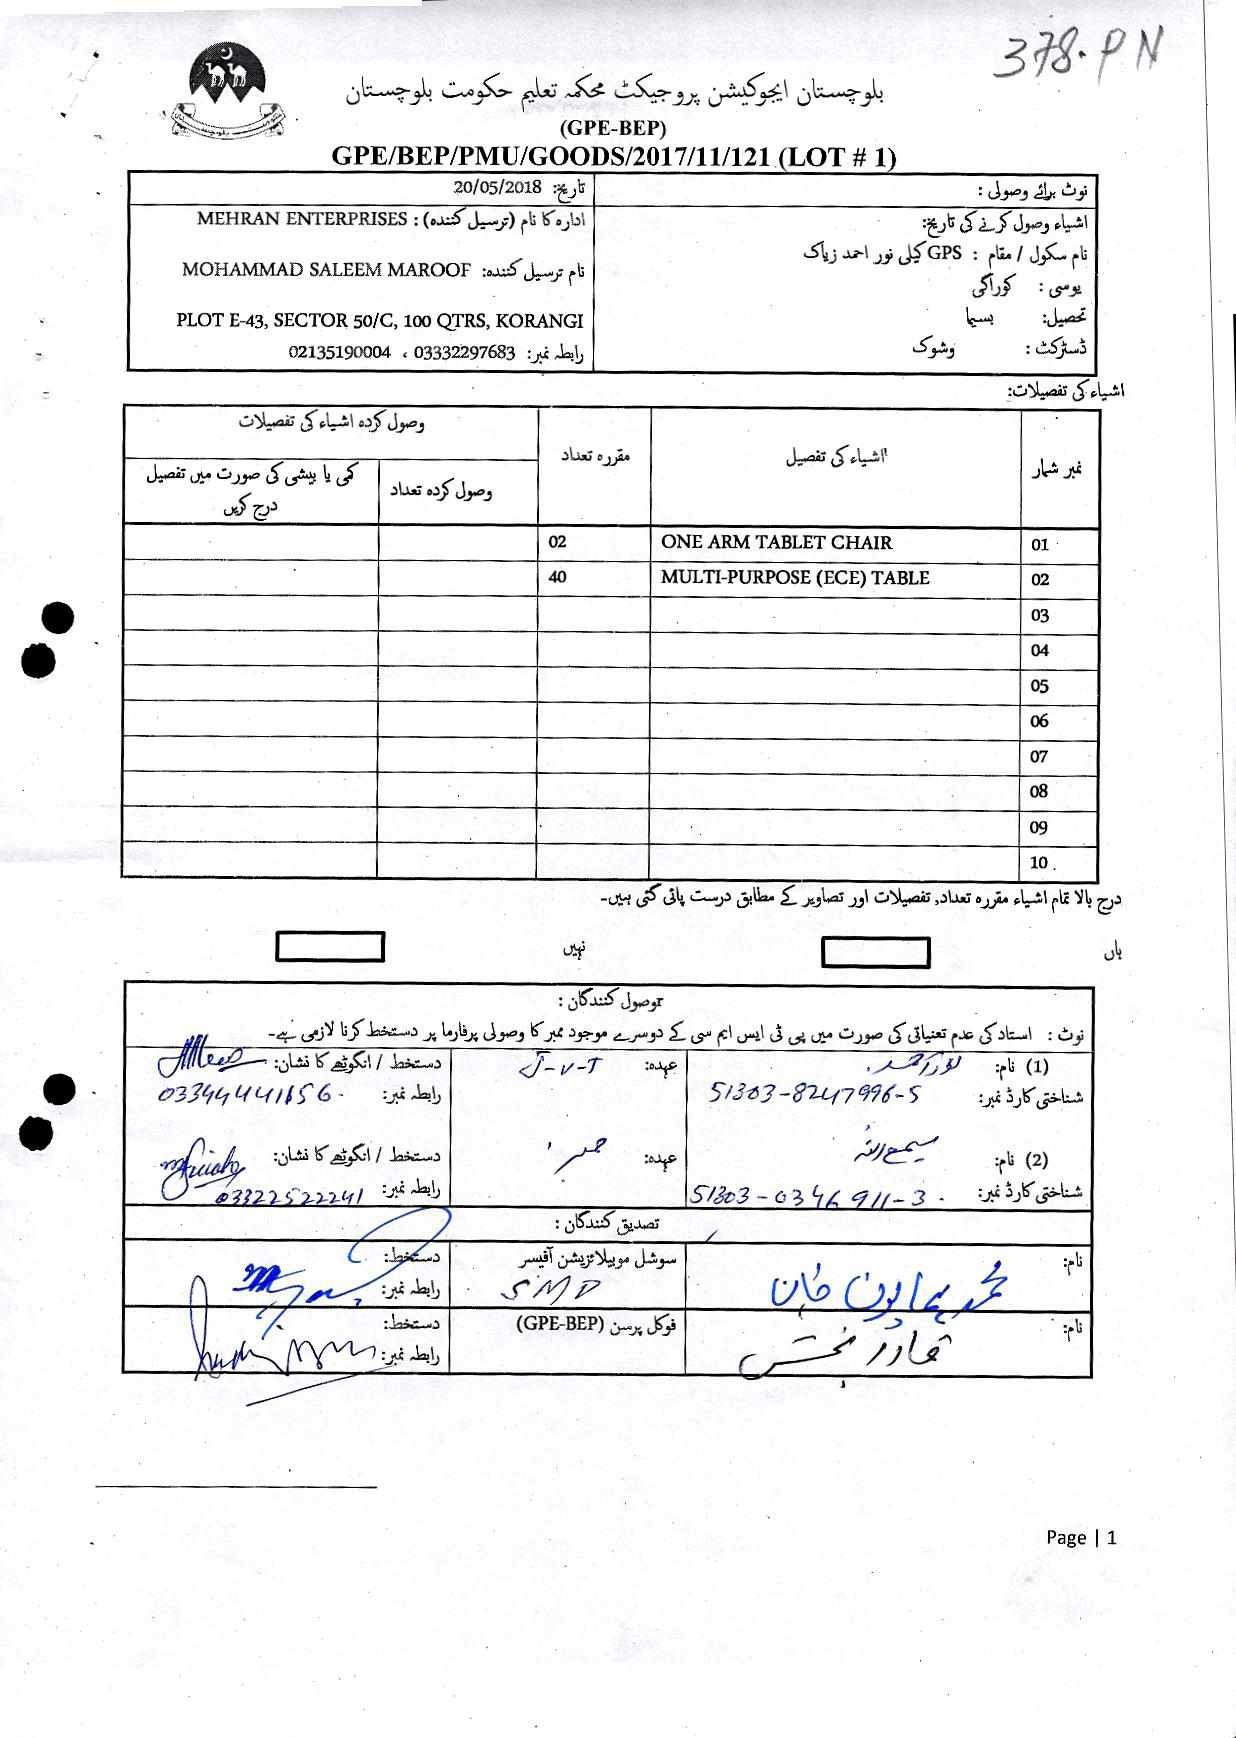 378. P N
بلوچستان ایجوکیشن پروجیکٹ محکمہ تعلیم حکومت بلوچستان
(GPE-BEP)
GPE/BEP/PMU/GOODS/2017/11/121 (LOT # 1)
نوٹ برائے وصولی :
تاریخ: 20/05/2018
اشیاء وصول کرنے کی تاریخ:
نام سکول / مقام : GPS کیلی نور احمد زباک
یوسی : کوراگی
تحصیل: بسیما
ڈسٹرکٹ : وشوک
ادارہ کا نام (ترسیل کنندہ) : MEHRAN ENTERPRISES
نام ترسیل کنندہ: MOHAMMAD SALEEM MAROOF
PLOT E-43, SECTOR 50/C, 100 QTRS, KORANGI
رابطہ نمبر: 03332297683 ، 02135190004
اشیاء کی تفصیلات:
نمبر شمار اشیاء کی تفصیل مقررہ تعداد وصول کردہ اشیاء کی تفصیلات
وصول کردہ تعداد کمی یا بیشی کی صورت میں تفصیل درج کریں
01 ONE ARM TABLET CHAIR 02
02 MULTI-PURPOSE (ECE) TABLE 40
03
04
05
06
07
08
09
10
درج بالا تمام اشیاء مقررہ تعداد, تفصیلات اور تصاویر کے مطابق درست پائی گئی ہیں۔
ہاں نہیں
توصول کنندگان :
نوٹ : استاد کی عدم تعنیاتی کی صورت میں پی ٹی ایس ایم سی کے دوسرے موجود ممبر کا وصولی پرفارما پر دستخط کرنا لازمی ہے۔
(1) نام: نور احمد عہدہ: J-V-T دستخط / انگوٹھے کا نشان:
شناختی کارڈ نمبر: 51303-8247996-5 رابطہ نمبر: 03344441156
(2) نام: سمیع اللہ عہدہ: ممبر دستخط / انگوٹھے کا نشان:
شناختی کارڈ نمبر: 51303-0346911-3 رابطہ نمبر: 03322522241
تصدیق کنندگان :
نام: محمد ہمایون خان سوشل موبیلائزیشن آفیسر دستخط:
SMO رابطہ نمبر:
نام: قادر بخش فوکل پرسن (GPE-BEP) دستخط:
رابطہ نمبر:
Page | 1